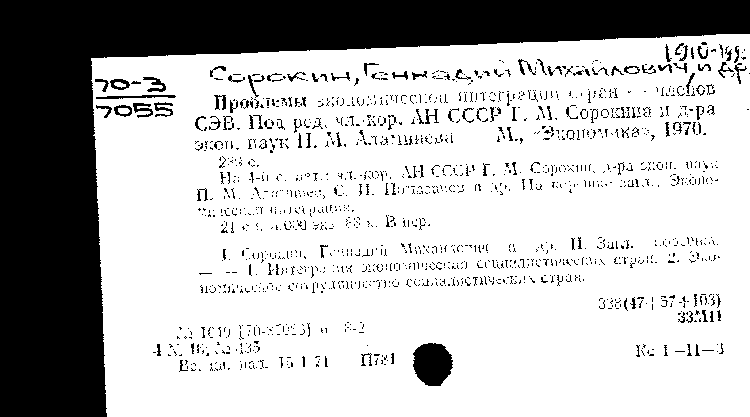 1910-199
Сорокин, Геннадий Михайлович, и др
70-3
7055
Проблемы экономической интеграции стран — членов
СЭВ. Под ред. чл.-кор. АН СССР Г. М. Сорокина и д-ра
экон. наук П. М. Алампиева М., «Экономика», 1970.
с.
На 4-й с. авт.: чл.-кор. АН СССР Г. М. Сорокин, д-ра экон. наук
П. М. Алампиев, и др. На корешке загл.: Эконо-
мическая интеграция.
21 см. экз. 88 к. В пер.
I. Сорокин, Геннадий Михайлович и др. II. Загл. корешка.
— — 1. Интеграция экономическая социалистических стран. 2. Эко-
номическое сотрудничество социалистических стран.
338(47+57+103)
33М11
№ 1049 п 8-2
Вс. кн. пал. 15 1 71 П781
Кс 1—11—3